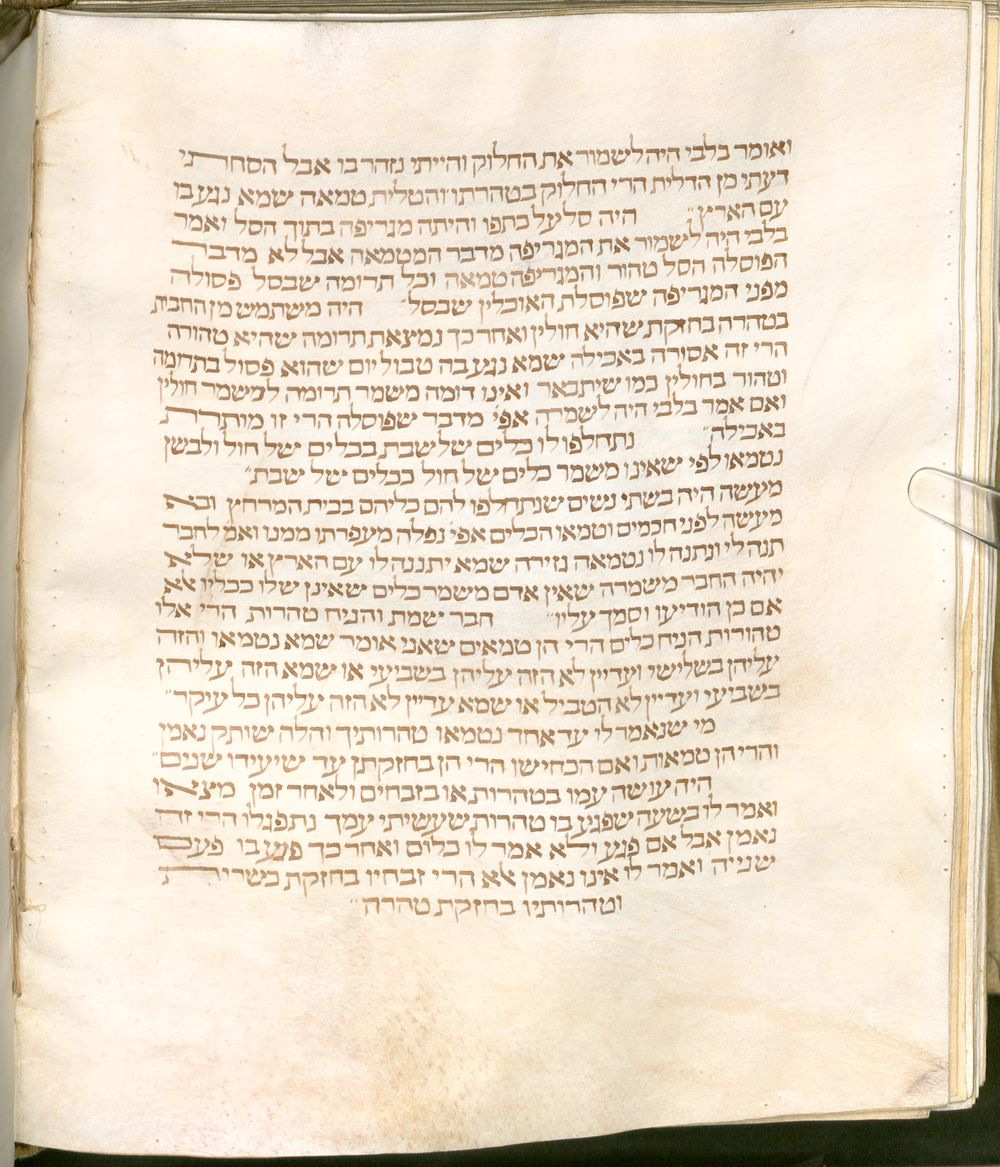 ואומר בלבי היה לשמור את החלוק והייתי נזהר בו אבל הסחתי
דעתי מן הטלית הרי החלוק בטהרתו והטלית טמאה שמא נגע בו
עם הארץ׃ היה סל על כתפו והיתה מגריפה בתוך הסל ואמר
בלבי היה לשמור את המגריפה מדבר המטמאה אבל לא מדבר
הפוסלה הסל טהור והמגריפה טמאה וכל תרומה שבסל פסולה
מפני המגריפה שפוסלת האוכלין שבסל׃ היה משתמש מן החבית
בטהרה בחזקת שהיא חולין ואחר כך נמצאת תרומה שהיא טהורה
הרי זה אסורה באכילה שמא נגע בה טבול יום שהוא פסול בתרומה
וטהור בחולין כמו שיתבאר ואינו דומה משמר תרומה למשמר חולין
ואם אמר בלבי היה לשמרה אפי׳ מדבר שפוסלה הרי זו מותרת
באכילה׃ נתחלפו לו כלים של שבת בכלים של חול ולבשן
נטמאו לפי שאינו משמר כלים של חול ככלים של שבת׃
מעשה היה בשתי נשים שנתחלפו להם כליהם בבית המרחץ ובא
מעשה לפני חכמים וטמאו הכלים אפי׳ נפלה מעפרתו ממנו ואמ׳ לחבר
תנה לי ונתנה לו נטמאה גזירה שמא יתננה לו עם הארץ או שלא
יהיה החבר משמרה שאין אדם משמר כלים שאינן שלו ככליו אלא
אם כן הודיעו וסמך עליו׃ חבר שמת והניח טהרות הרי אלו
טהורות הניח כלים הרי הן טמאים שאני אומר שמא נטמאו והזה
עליהן בשלישי ועדיין לא הזה עליהן בשביעי או שמא הזה עליהן
בשביעי ועדיין לא הטביל או שמא עדיין לא הזה עליהן כל עיקר׃
מי שנאמר לו עד אחד נטמאו טהרותיך והלה שותק נאמן
והרי הן טמאות ואם הכחישו הרי הן בחזקתן עד שיעידו שנים׃
היה עושה עמו בטהרות או בזבחים ולאחר זמן מצאו
ואמר לו בשעה שפגע בו טהרות שעשיתי עמך נתפגלו הרי זה
נאמן אבל אם פגע ולא אמר לו כלום ואחר כך פגע בו פעם
שנייה ואמר לו אינו נאמן אלא הרי זבחיו בחזקת כשרית
וטהרותיו בחזקת טהרה׃